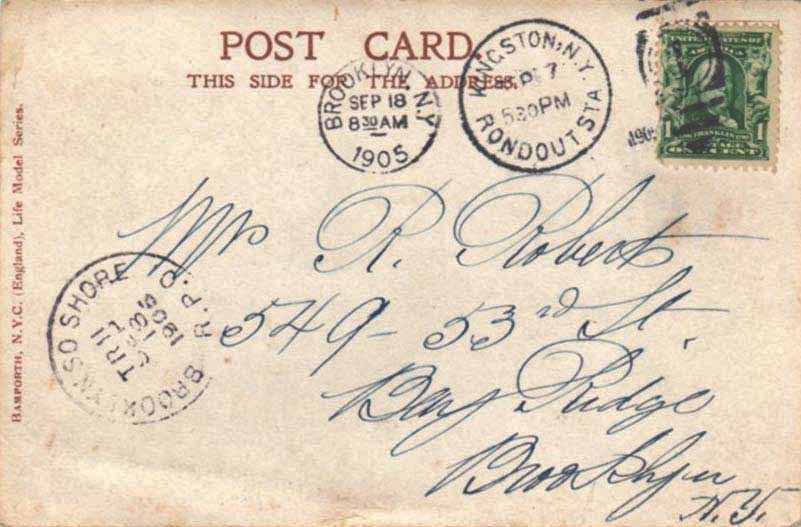 POST CARD.
THIS SIDE FOR THE ADDRESS.
BROOKLYN, N.Y.
SEP 18
8 30 AM
1905
KINGSTON, N.Y.
7
530 PM
RONDOUT STA
1905
UNITED STATES OF
1 FRANKLIN 1
ONE CENT
Mrs R. Roberts
549 - 53rd St.
Bay Ridge
Brooklyn
N.Y.
BROOKLYN SO SHORE R.P.O.
TR 11
SEP 18
1905
BAMFORTH, N.Y.C. (England), Life Model Series.